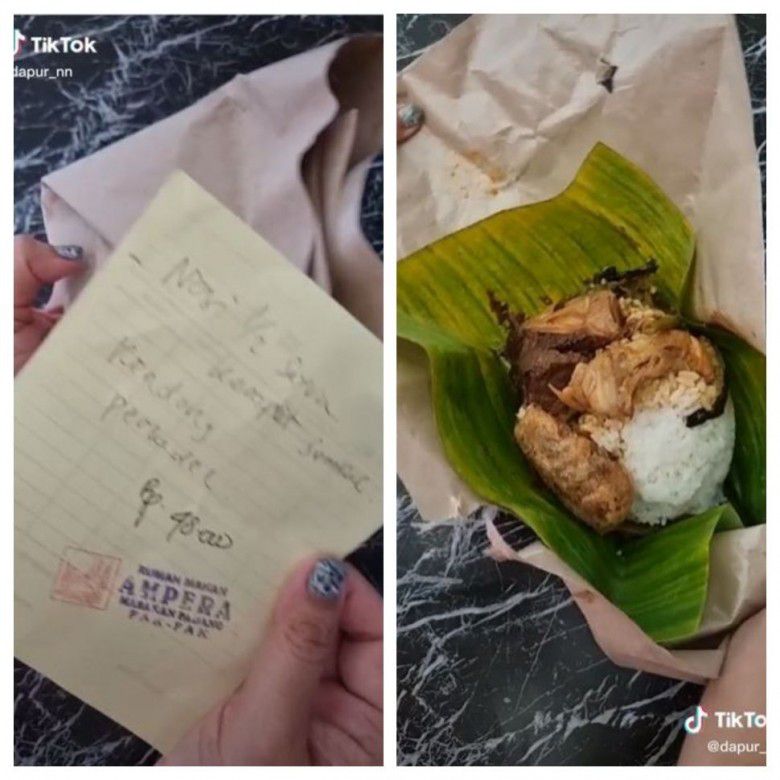 TikTok
dapur_nn
Nasi
Rendang
Perkedel
Rp 48.000
RUMAH MAKAN
AMPERA
MASAKAN PADANG
FAK-FAK
TikTo
@dapur_